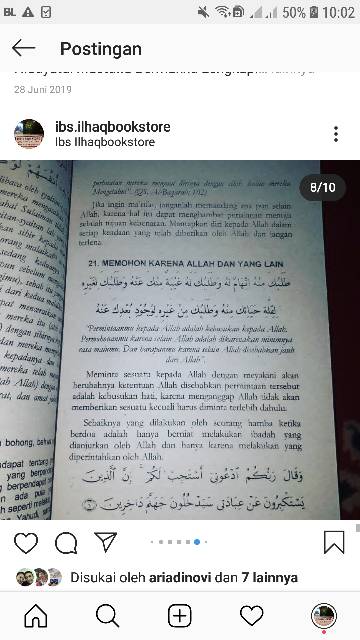 BL 50% 10:02
Postingan
28 Juni 2019
ibs.ilhaqbookstore
Ibs Ilhaqbookstore
8/10
Jika ingin ma'rifat, janganlah memandang apa pun selain
Allah, karena hal itu dapat menghambat perjalanan menuju
sebuah tujuan kebenaran. Mantapkan diri kepada Allah dalam
setiap keadaan yang telah diberikan oleh Allah dan jangan
terlena.
21. MEMOHON KARENA ALLAH DAN YANG LAIN
طَلَبُكَ مِنْهُ اتِّهَامٌ لَهُ وَطَلَبُكَ لَهُ غَيْبَةٌ مِنْكَ عَنْهُ وَطَلَبُكَ لِغَيْرِهِ
لِقِلَّةِ حَيَائِكَ مِنْهُ وَطَلَبُكَ مِنْ غَيْرِهِ لِوُجُودِ بُعْدِكَ عَنْهُ
"Permintaanmu kepada Allah adalah kebusukan kepada Allah.
Permohonanmu karena selain Allah adalah dikarenakan minimnya
rasa malumu. Dan harapanmu karena selain Allah disebabkan jauh
dari Allah".
Meminta sesuatu kepada Allah dengan meyakini akan
berubahnya ketentuan Allah disebabkan permintaan tersebut
adalah kebusukan hati, karena menganggap Allah tidak akan
memberikan sesuatu kecuali harus diminta terlebih dahulu.
Sebaiknya yang dilakukan oleh seorang hamba ketika
berdoa adalah hanya berniat melakukan ibadah yang
dianjurkan oleh Allah dan hanya karena melakukan yang
diperintahkan oleh Allah.
وَقَالَ رَبُّكُمُ ادْعُونِي أَسْتَجِبْ لَكُمْ إِنَّ الَّذِينَ
يَسْتَكْبِرُونَ عَنْ عِبَادَتِي سَيَدْخُلُونَ جَهَنَّمَ دَاخِرِينَ
Disukai oleh ariadinovi dan 7 lainnya